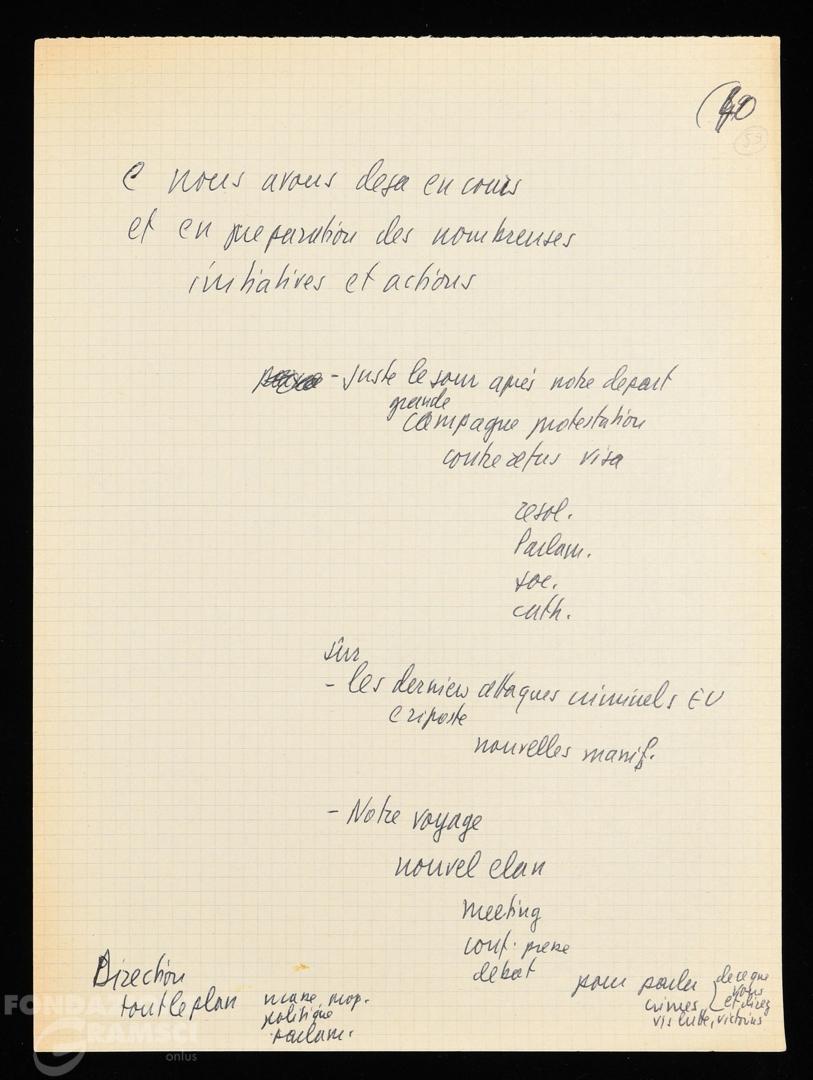 40
59
e nous avons deja en cours
et en preparation des nombreuses
initiatives et actions
- Juste le jour après notre depart
grande
campagne protestation
contre refus visa
resol.
Parlam.
soc.
cath.
sûr
- les derniers attaques criminels EU
e riposte
nouvelles manif.
- Notre voyage
nouvel elan
meeting
conf. presse
debat
Direction
tout le plan
masse, prop.
politique
parlam.
pour parler
crimes
de ce que
vous
et direz
vis lutte, victoires
FONDAZ
GRAMSCI
onlus